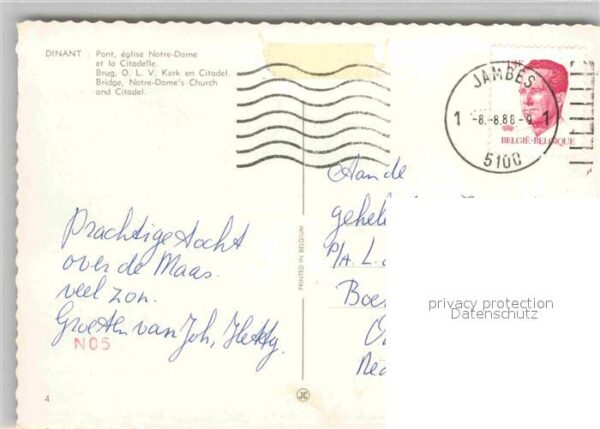 DINANT : Pont, église Notre-Dame
et la Citadelle.
Brug, O. L. V. Kerk en Citadel.
Bridge, Notre-Dame's Church
and Citadel.
JAMBES
1 -8.-8.88-9 1
5100
BELGIË-BELGIQUE
Prachtige tocht
over de Maas.
veel zon.
Groeten van Joh,
N05
4
PRINTED IN BELGIUM
JC
Aan de
P/A. L.
privacy protection
Datenschutz